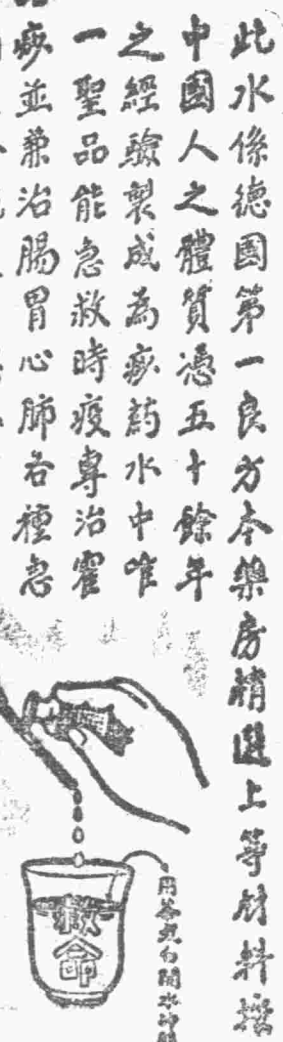 此水係德國第一良方本藥房精選上等材料擬
中國人之體質憑五十餘年
之經驗製成為痧药水中唯
一聖品能急救時疫專治霍
痧並兼治腸胃心肺各種急
救命
用茶或白開水沖服